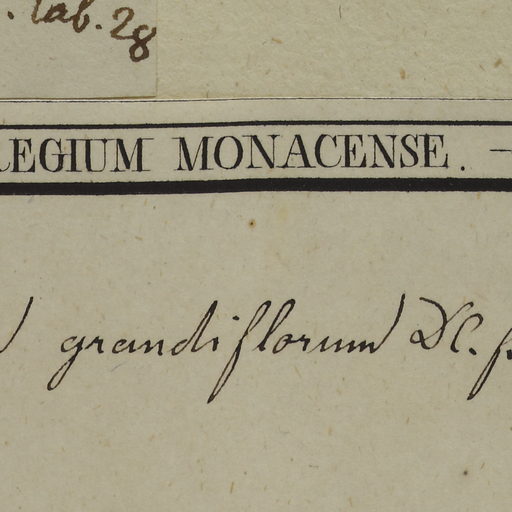 . tab. 28
REGIUM MONACENSE. —
grandiflorum DC.